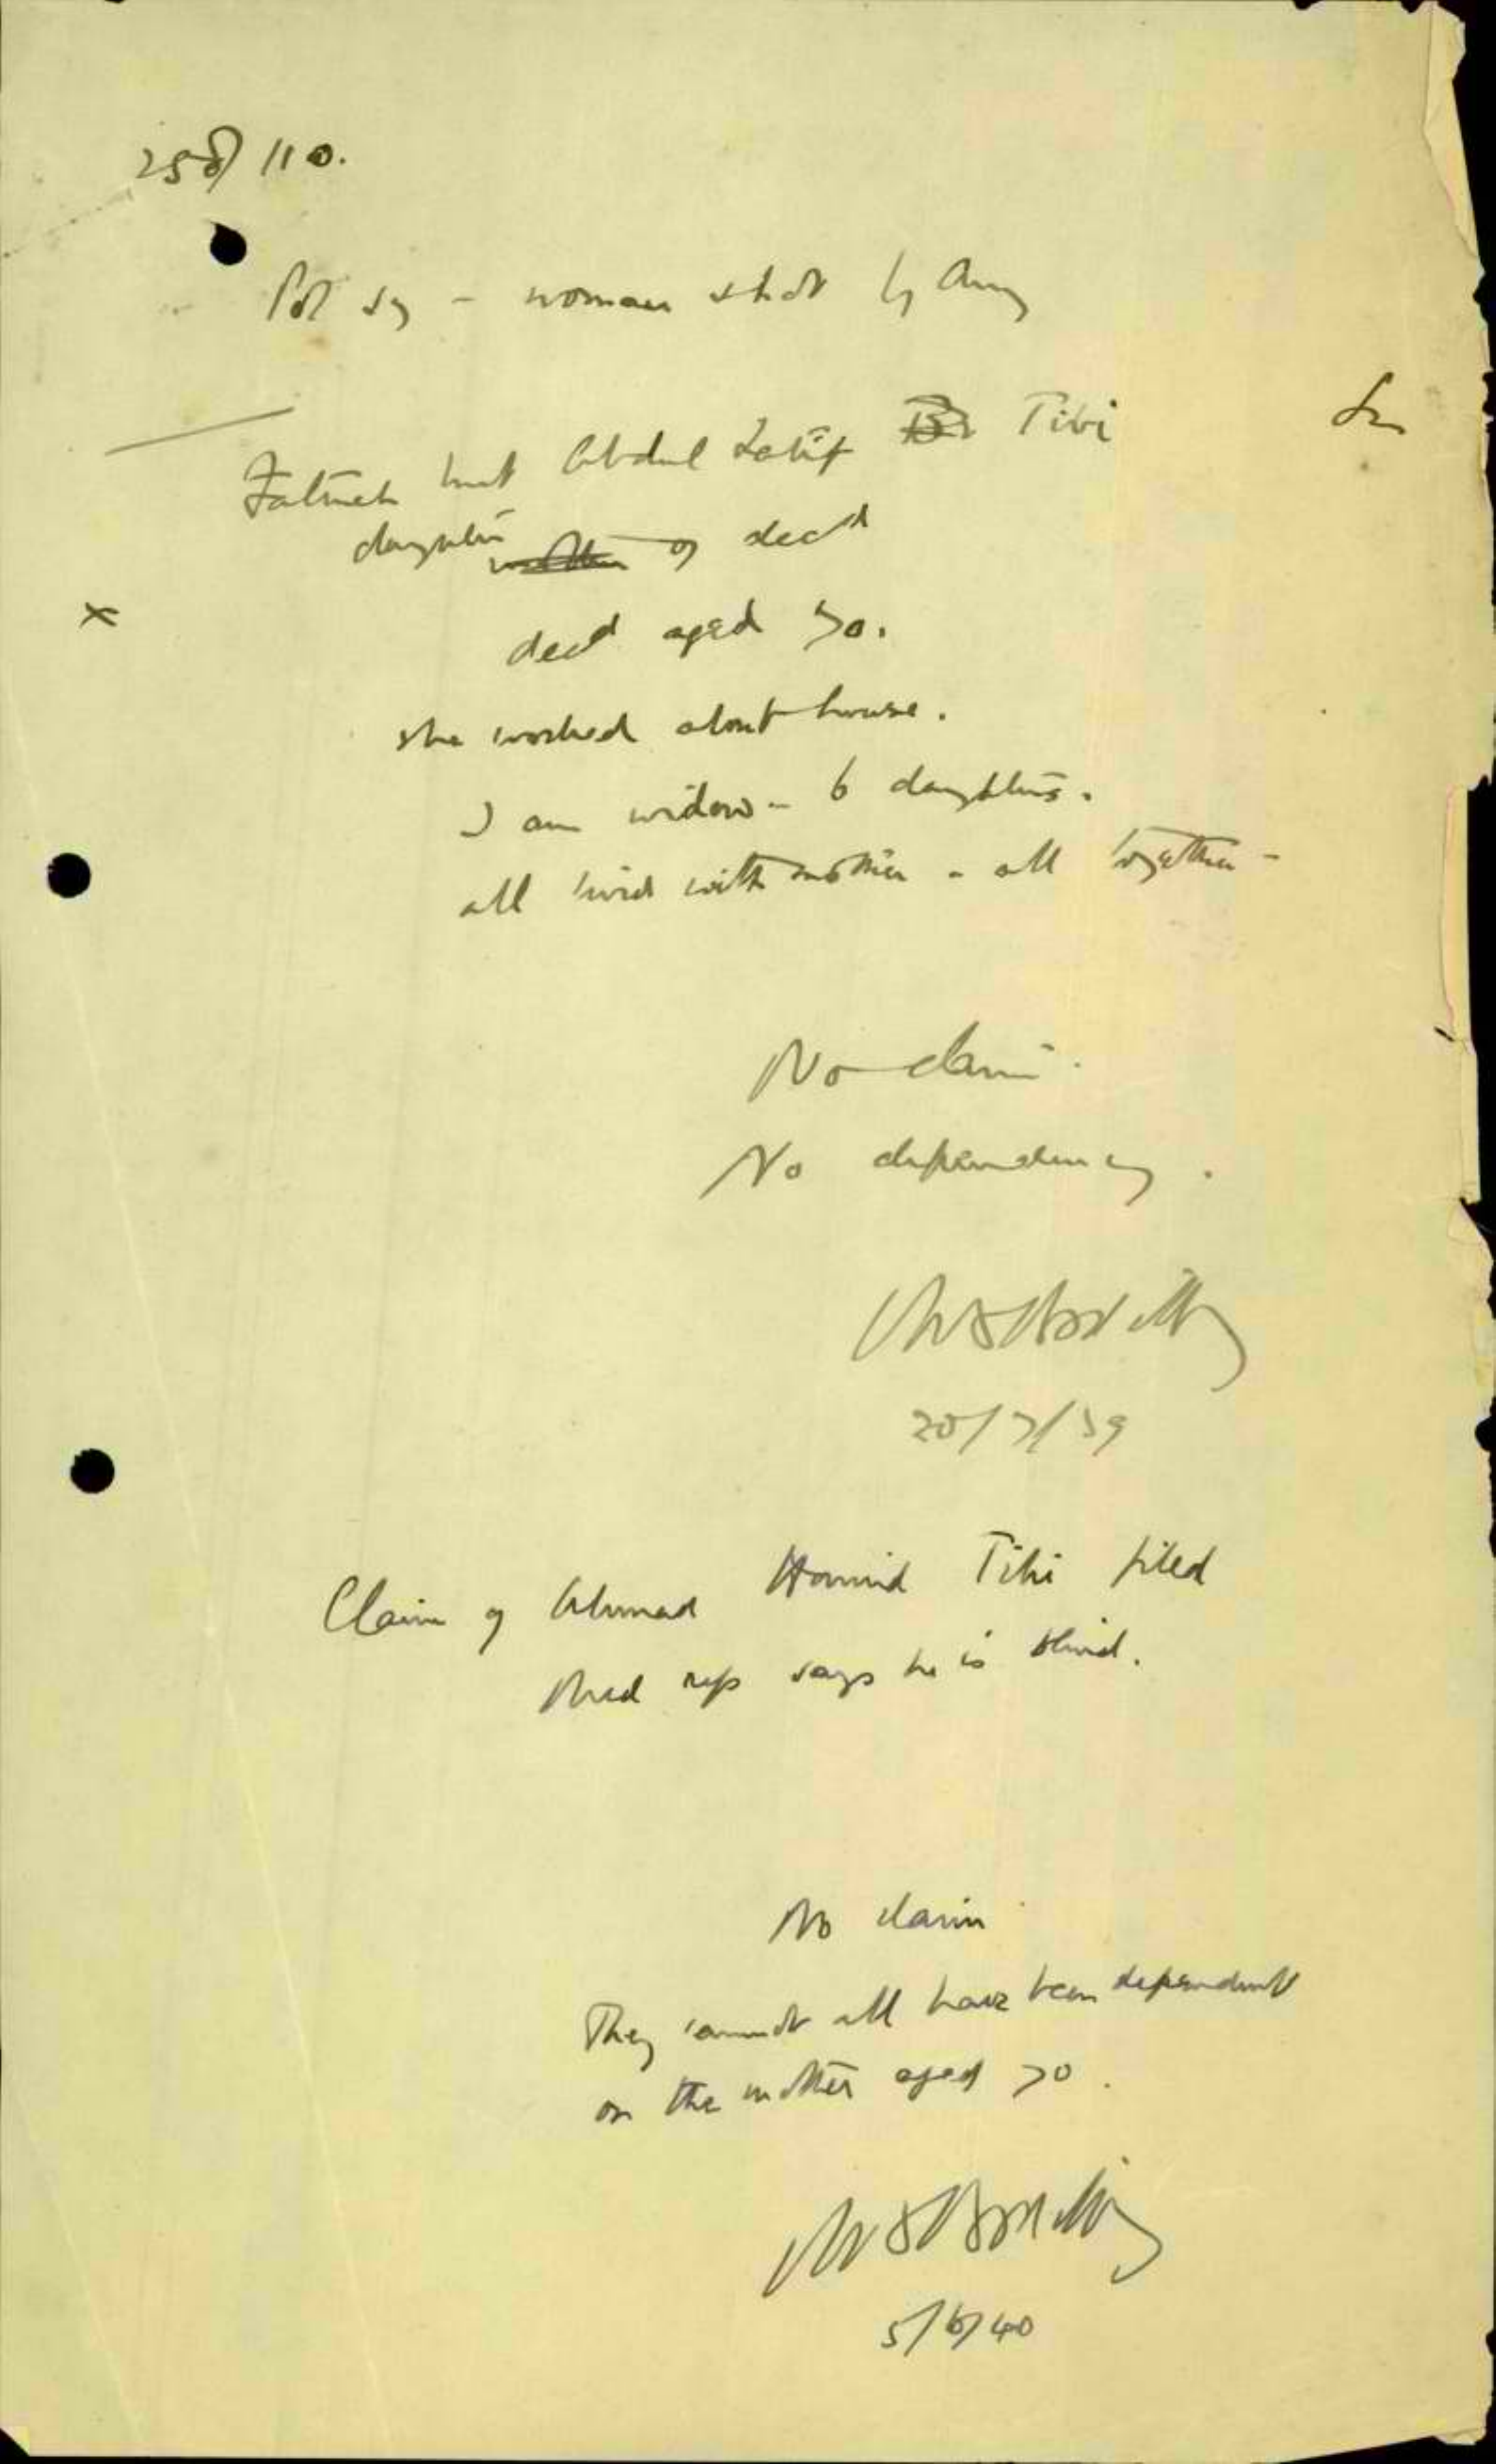 258/110.
Pol say - woman shot by Army
Sn
Fatmeh bint Abdul Latif Tibi
daughter mother of decd
decd aged 70.
x
she worked about house.
I am widow - 6 daughters.
all lived with mother - all together -
No claim.
No dependency.
20/7/39
Claim of Ahmad Hamid Tibi filed
Med rep says he is blind.
No claim
They cannot all have been dependent
on the mother aged 70.
5/6/40